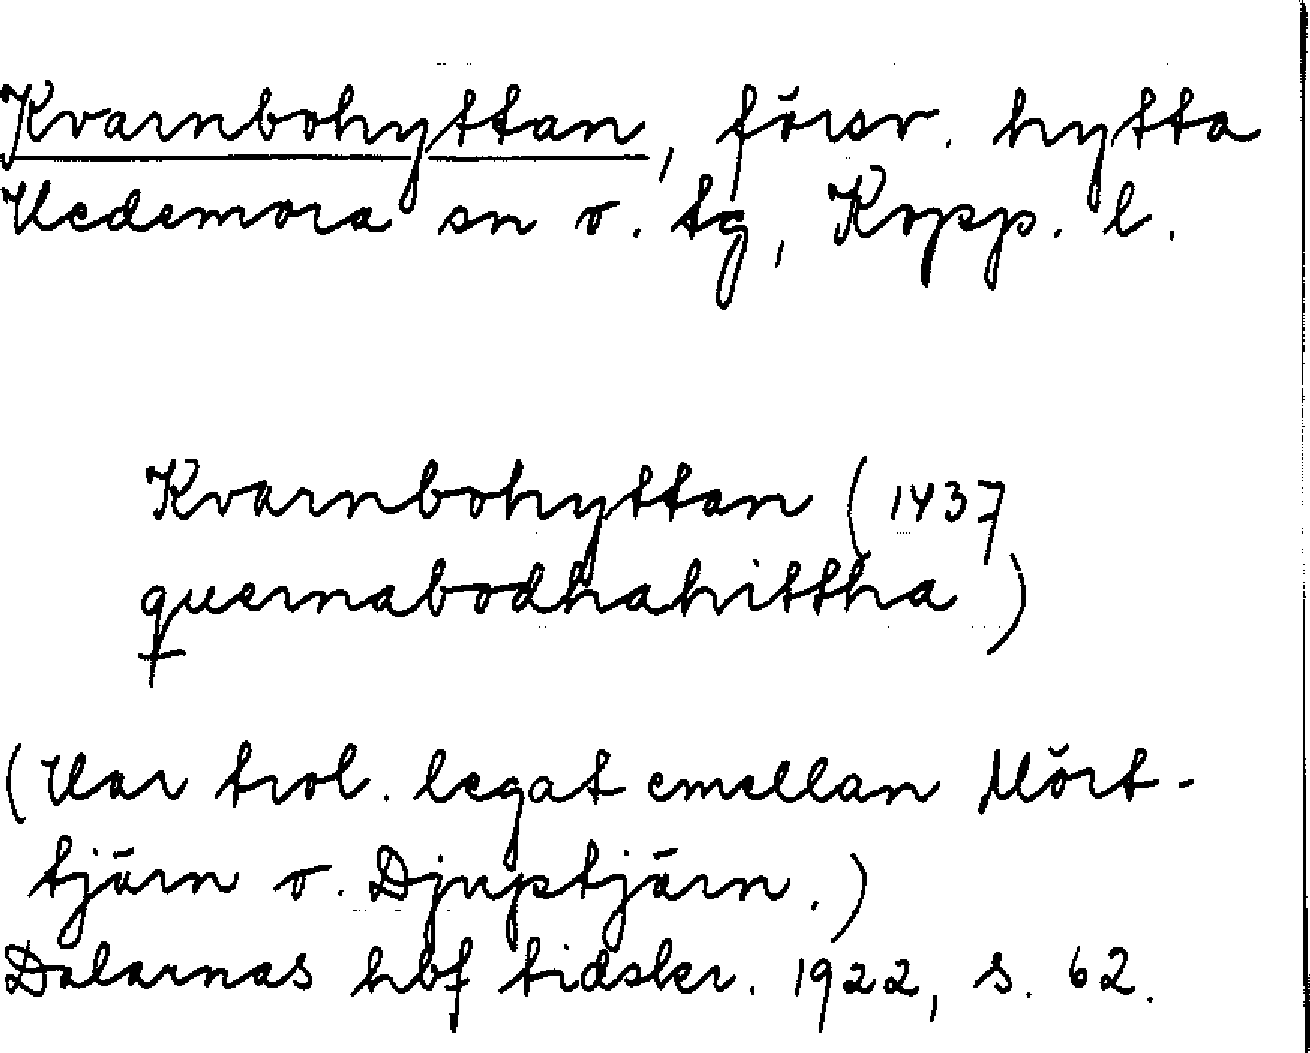 Kvarnbohyttan, försv. hytta
Vedemora sn o. tg, Kopp. l.
Kvarnbohyttan (1437
quernabodhahittha)
(Har trol. legat emellan Mört-
tjärn o. Djuptjärn.)
Dalarnas hbf tidskr. 1922, s. 62.